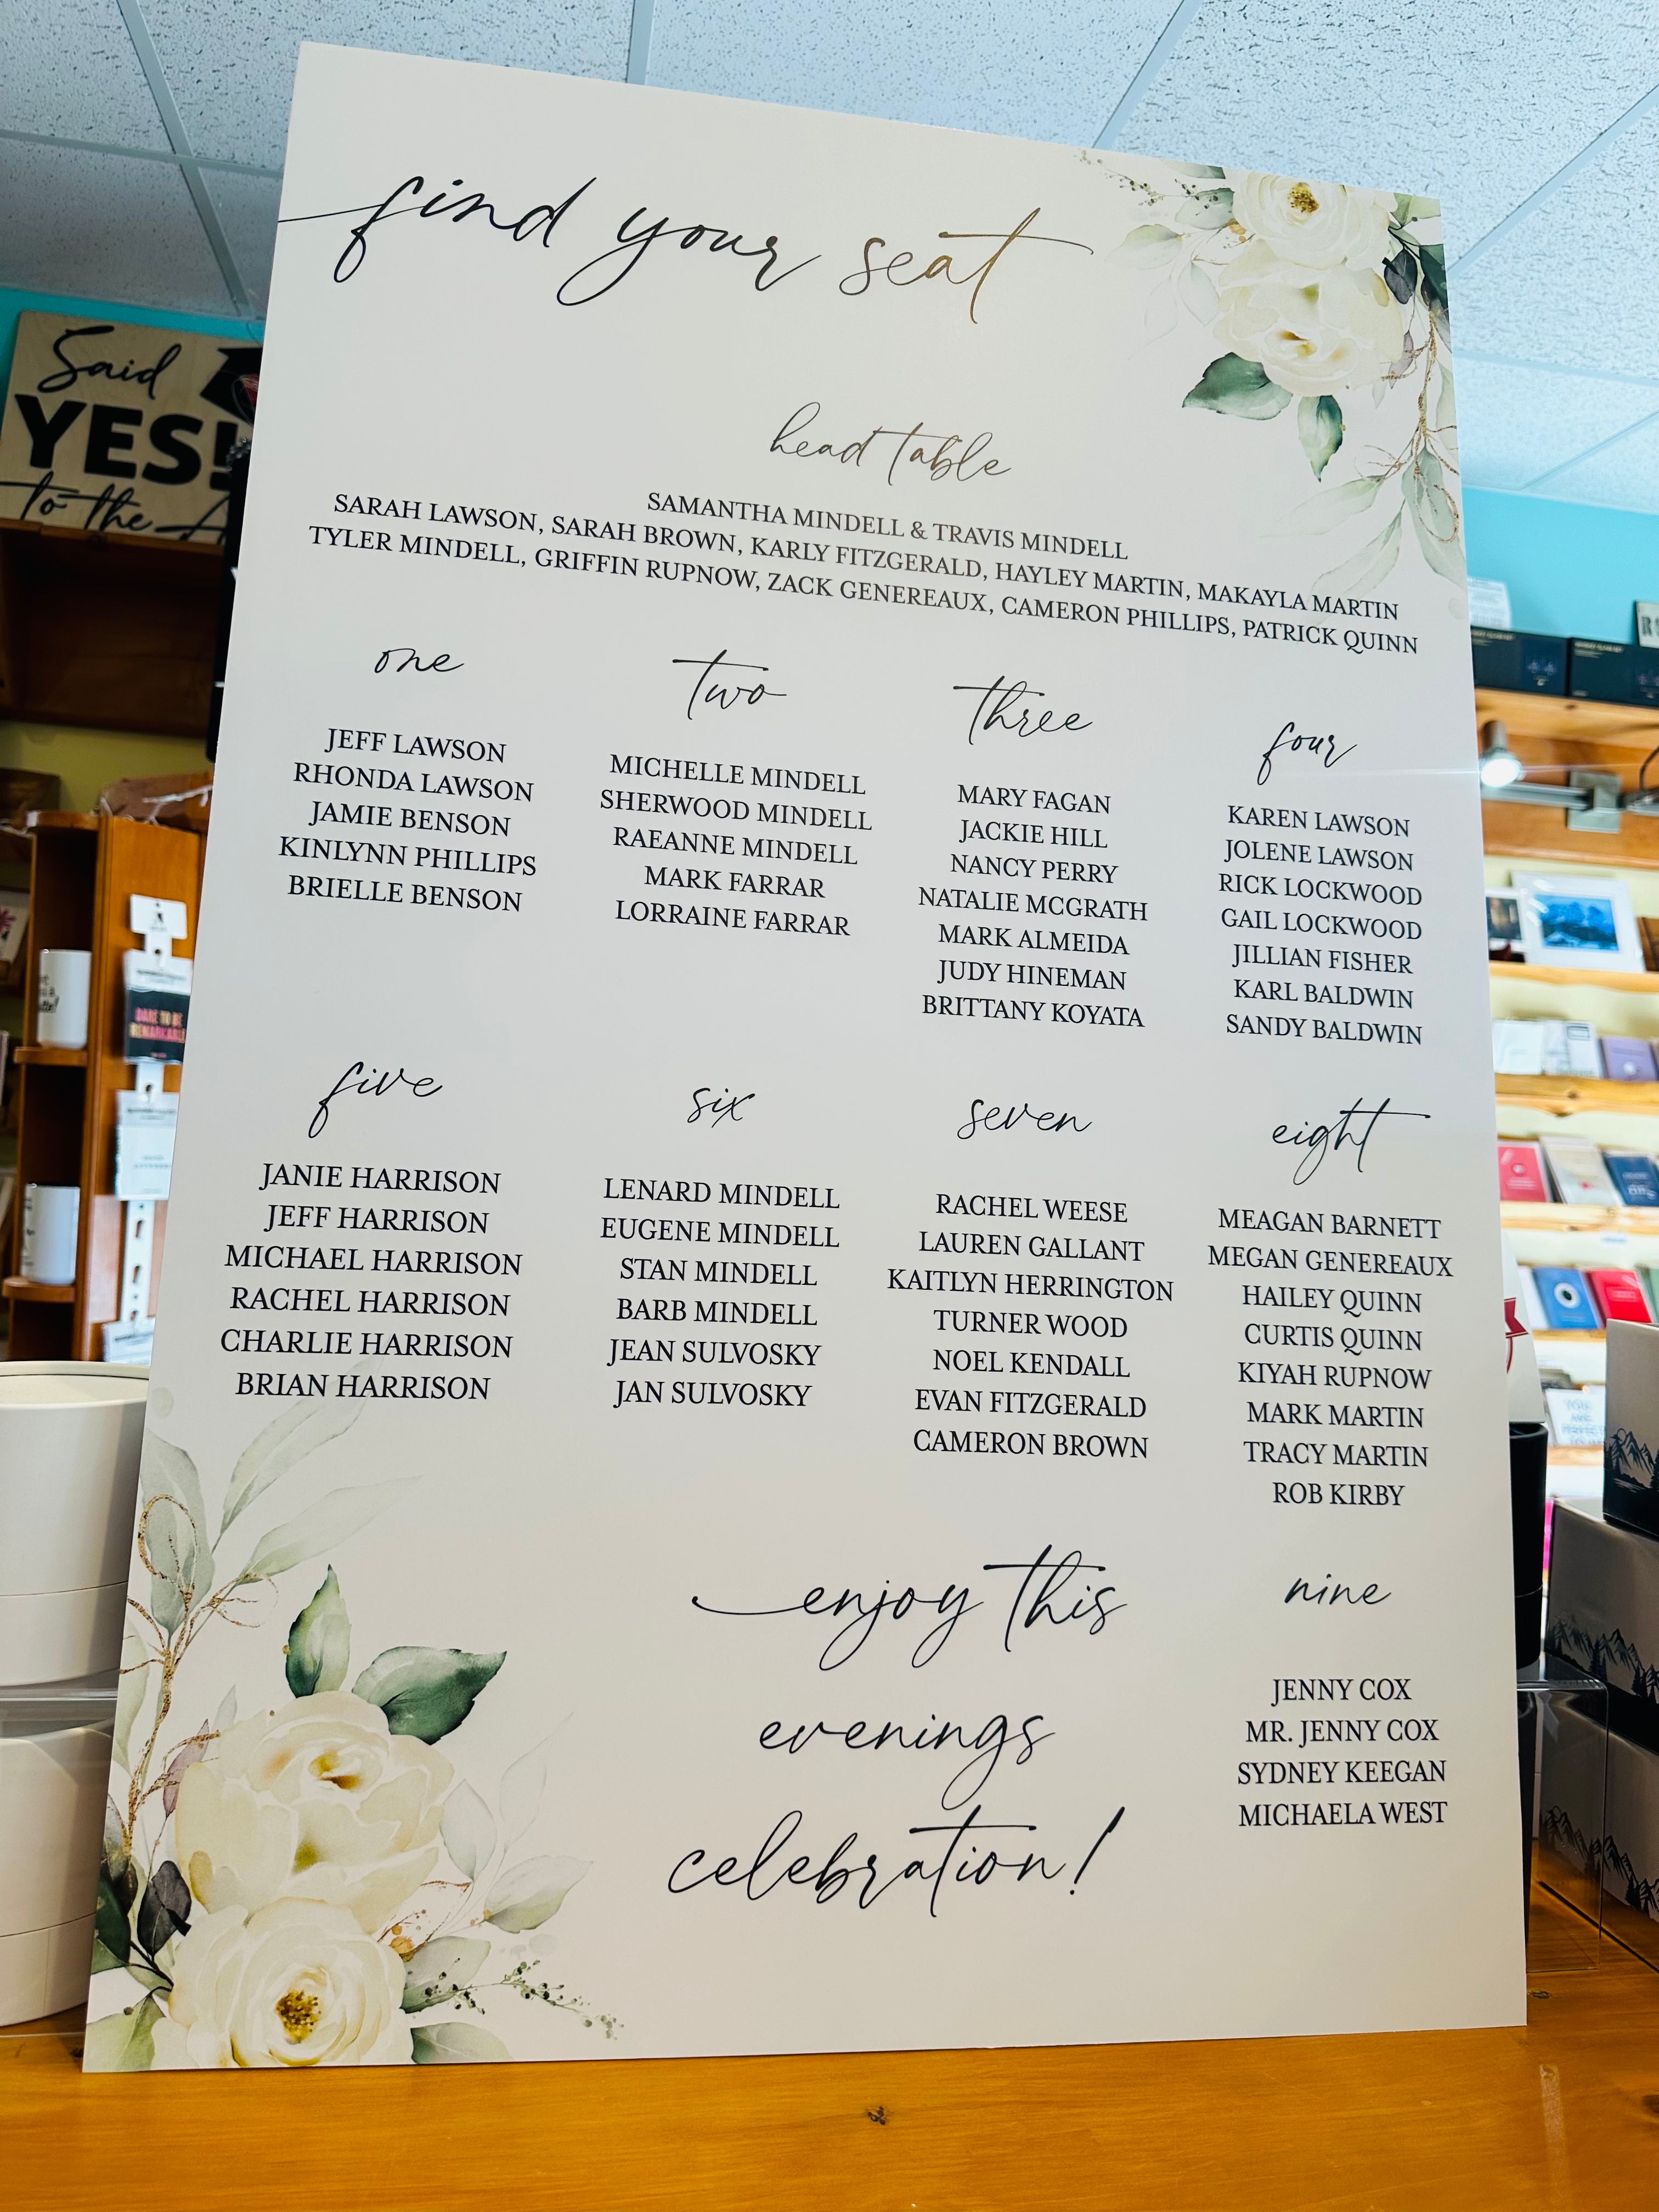 find your seat
head table
SAMANTHA MINDELL & TRAVIS MINDELL
SARAH LAWSON, SARAH BROWN, KARLY FITZGERALD, HAYLEY MARTIN, MAKAYLA MARTIN
TYLER MINDELL, GRIFFIN RUPNOW, ZACK GENEREAUX, CAMERON PHILLIPS, PATRICK QUINN
one
JEFF LAWSON
RHONDA LAWSON
JAMIE BENSON
KINLYNN PHILLIPS
BRIELLE BENSON
two
MICHELLE MINDELL
SHERWOOD MINDELL
RAEANNE MINDELL
MARK FARRAR
LORRAINE FARRAR
three
MARY FAGAN
JACKIE HILL
NANCY PERRY
NATALIE MCGRATH
MARK ALMEIDA
JUDY HINEMAN
BRITTANY KOYATA
four
KAREN LAWSON
JOLENE LAWSON
RICK LOCKWOOD
GAIL LOCKWOOD
JILLIAN FISHER
KARL BALDWIN
SANDY BALDWIN
five
JANIE HARRISON
JEFF HARRISON
MICHAEL HARRISON
RACHEL HARRISON
CHARLIE HARRISON
BRIAN HARRISON
six
LENARD MINDELL
EUGENE MINDELL
STAN MINDELL
BARB MINDELL
JEAN SULVOSKY
JAN SULVOSKY
seven
RACHEL WEESE
LAUREN GALLANT
KAITLYN HERRINGTON
TURNER WOOD
NOEL KENDALL
EVAN FITZGERALD
CAMERON BROWN
eight
MEAGAN BARNETT
MEGAN GENEREAUX
HAILEY QUINN
CURTIS QUINN
KIYAH RUPNOW
MARK MARTIN
TRACY MARTIN
ROB KIRBY
nine
JENNY COX
MR. JENNY COX
SYDNEY KEEGAN
MICHAELA WEST
enjoy this
evenings
celebration!
Said
YES!
to the
DARE TO BE
REMARKABLE